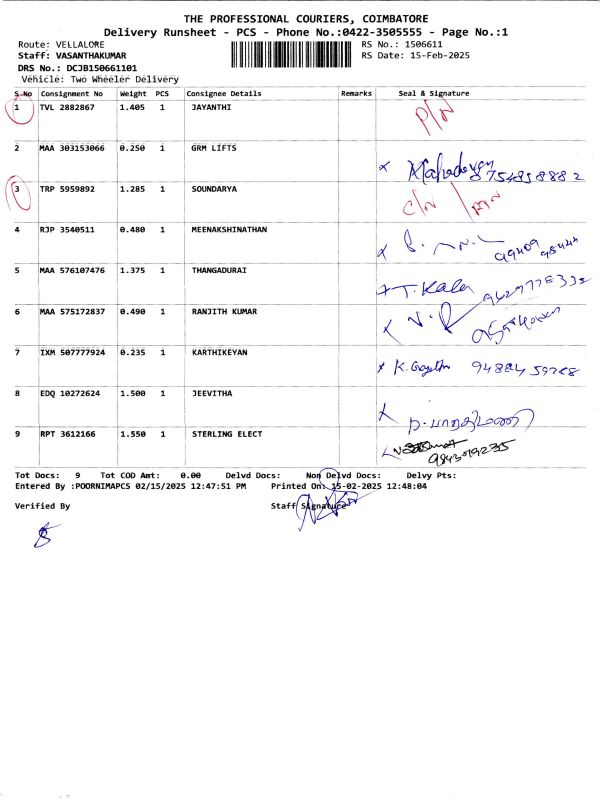 THE PROFESSIONAL COURIERS, COIMBATORE
Delivery Runsheet - PCS - Phone No.:0422-3505555 - Page No.:1
Route: VELLALORE RS No.: 1506611
Staff: VASANTHAKUMAR RS Date: 15-Feb-2025
DRS No.: DCJB150661101
Vehicle: Two Wheeler Delivery
S No Consignment No Weight PCS Consignee Details Remarks Seal & Signature
1 TVL 2882867 1.405 1 JAYANTHI P/N
2 MAA 303153066 0.250 1 GRM LIFTS
x Mahadevan 7548588882
3 TRP 5959892 1.285 1 SOUNDARYA C/N
4 RJP 3540511 0.480 1 MEENAKSHINATHAN
5 MAA 576107476 1.375 1 THANGADURAI
T. Kala
6 MAA 575172837 0.490 1 RANJITH KUMAR
7 IXM 507777924 0.235 1 KARTHIKEYAN
8 EDQ 10272624 1.500 1 JEEVITHA
9 RPT 3612166 1.550 1 STERLING ELECT
Tot Docs: 9 Tot COD Amt: 0.00 Delvd Docs: Non Delvd Docs: Delvy Pts:
Entered By :POORNIMAPCS 02/15/2025 12:47:51 PM Printed On: 15-02-2025 12:48:04
Verified By Staff Signature